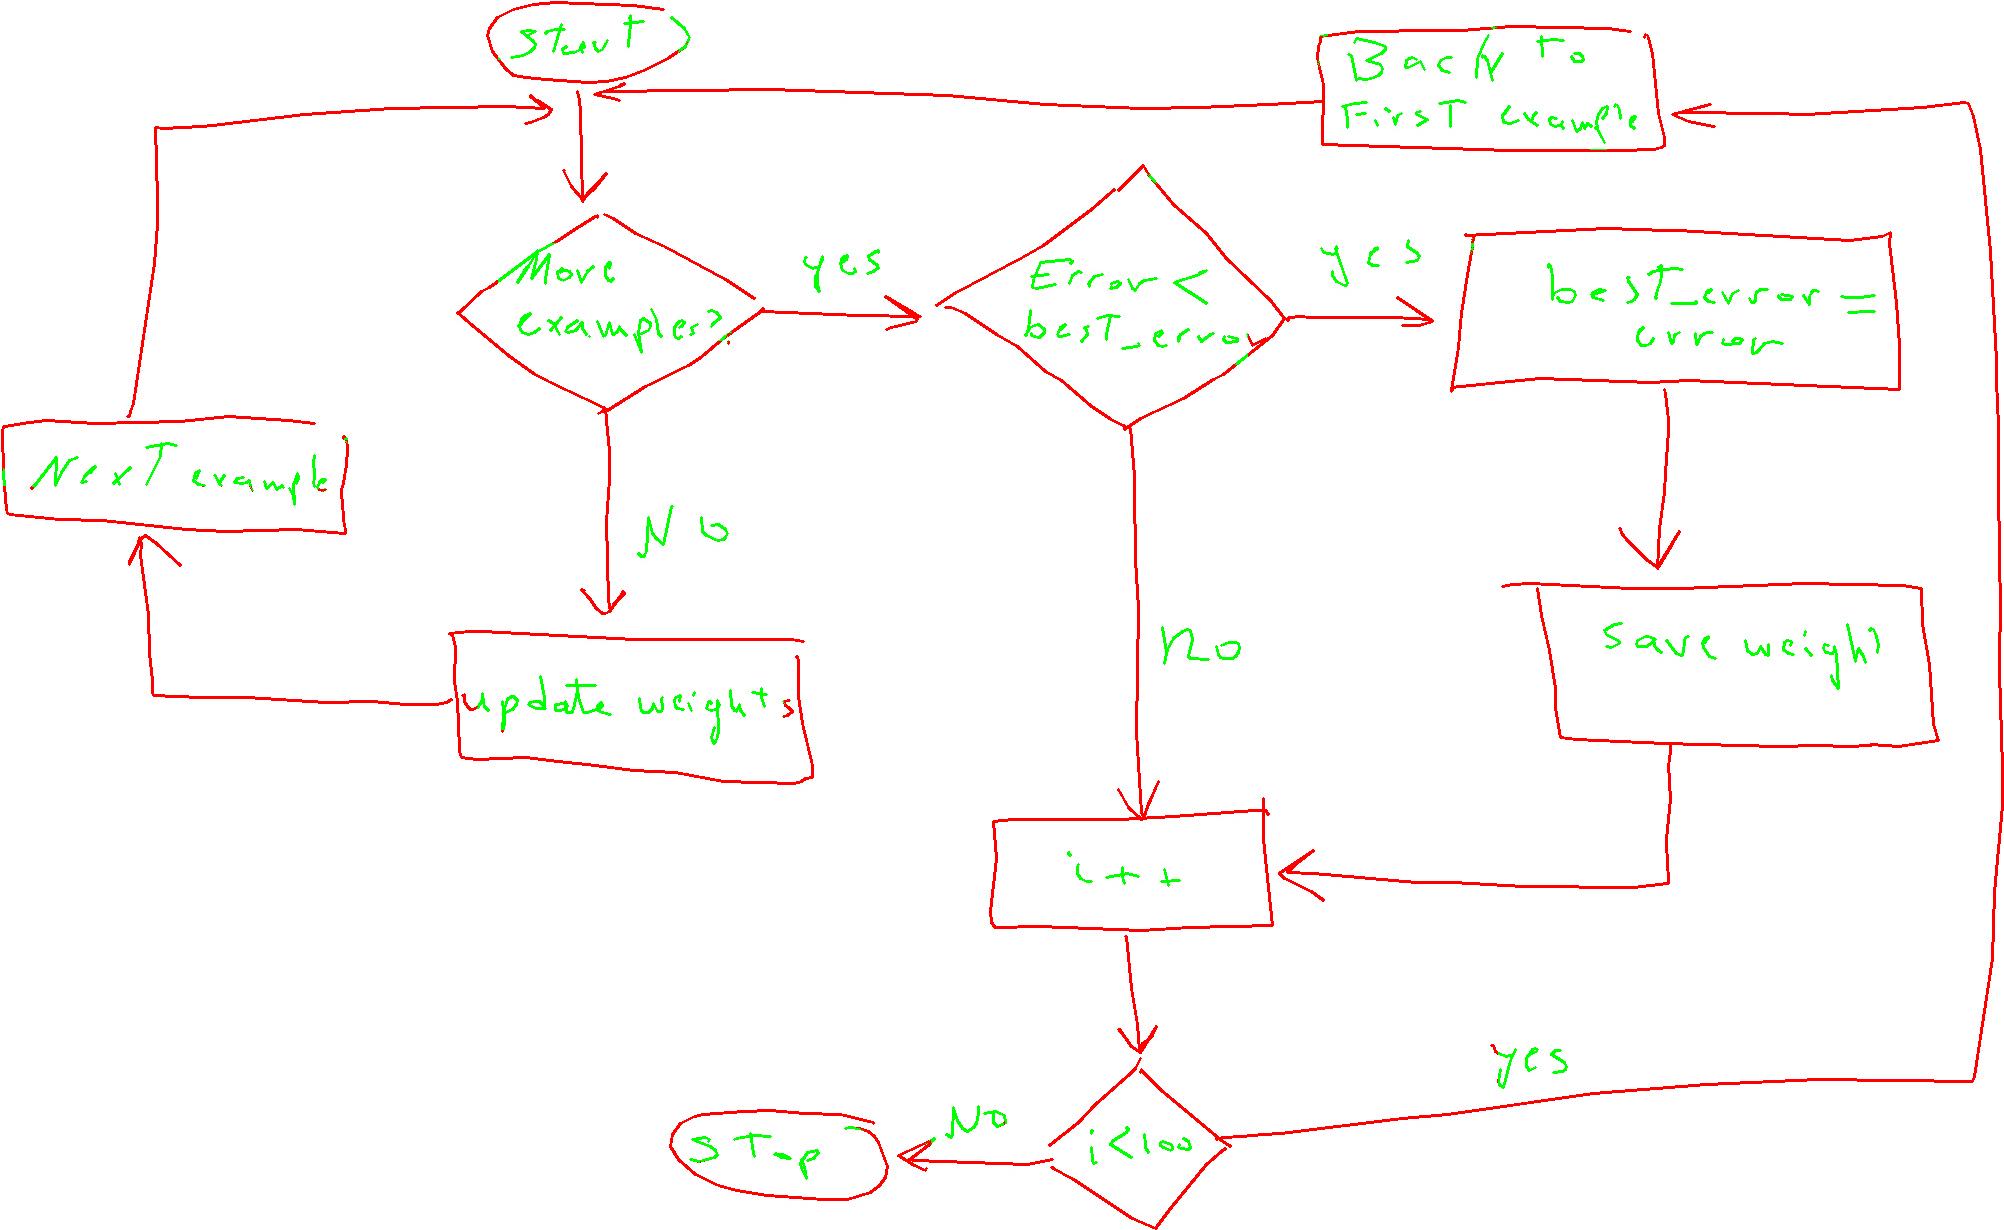 Start
Back to
First example
More
examples?
yes
Error <
best_error
yes
best_error =
error
Next example
No
update weights
No
save weight
i++
yes
No
i<100
Stop